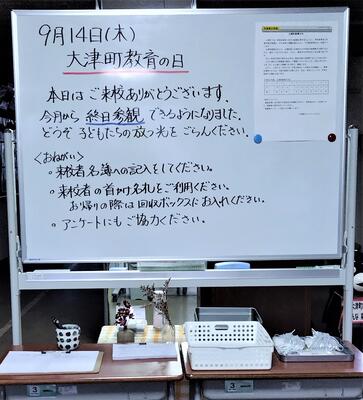 9月14日(木)
大津町教育の日
本日は ご来校ありがとうございます.
今月から 終日参観 できるようになりました.
どうぞ 子どもたちの放つ光を ごらんください.
<おねがい>
◦ 来校者名簿への記入をしてください。
◦ 来校者の首かけ名札をご利用ください。
お帰りの際は回収ボックスにお入れください.
◦ アンケートにもご協力ください。
3
3